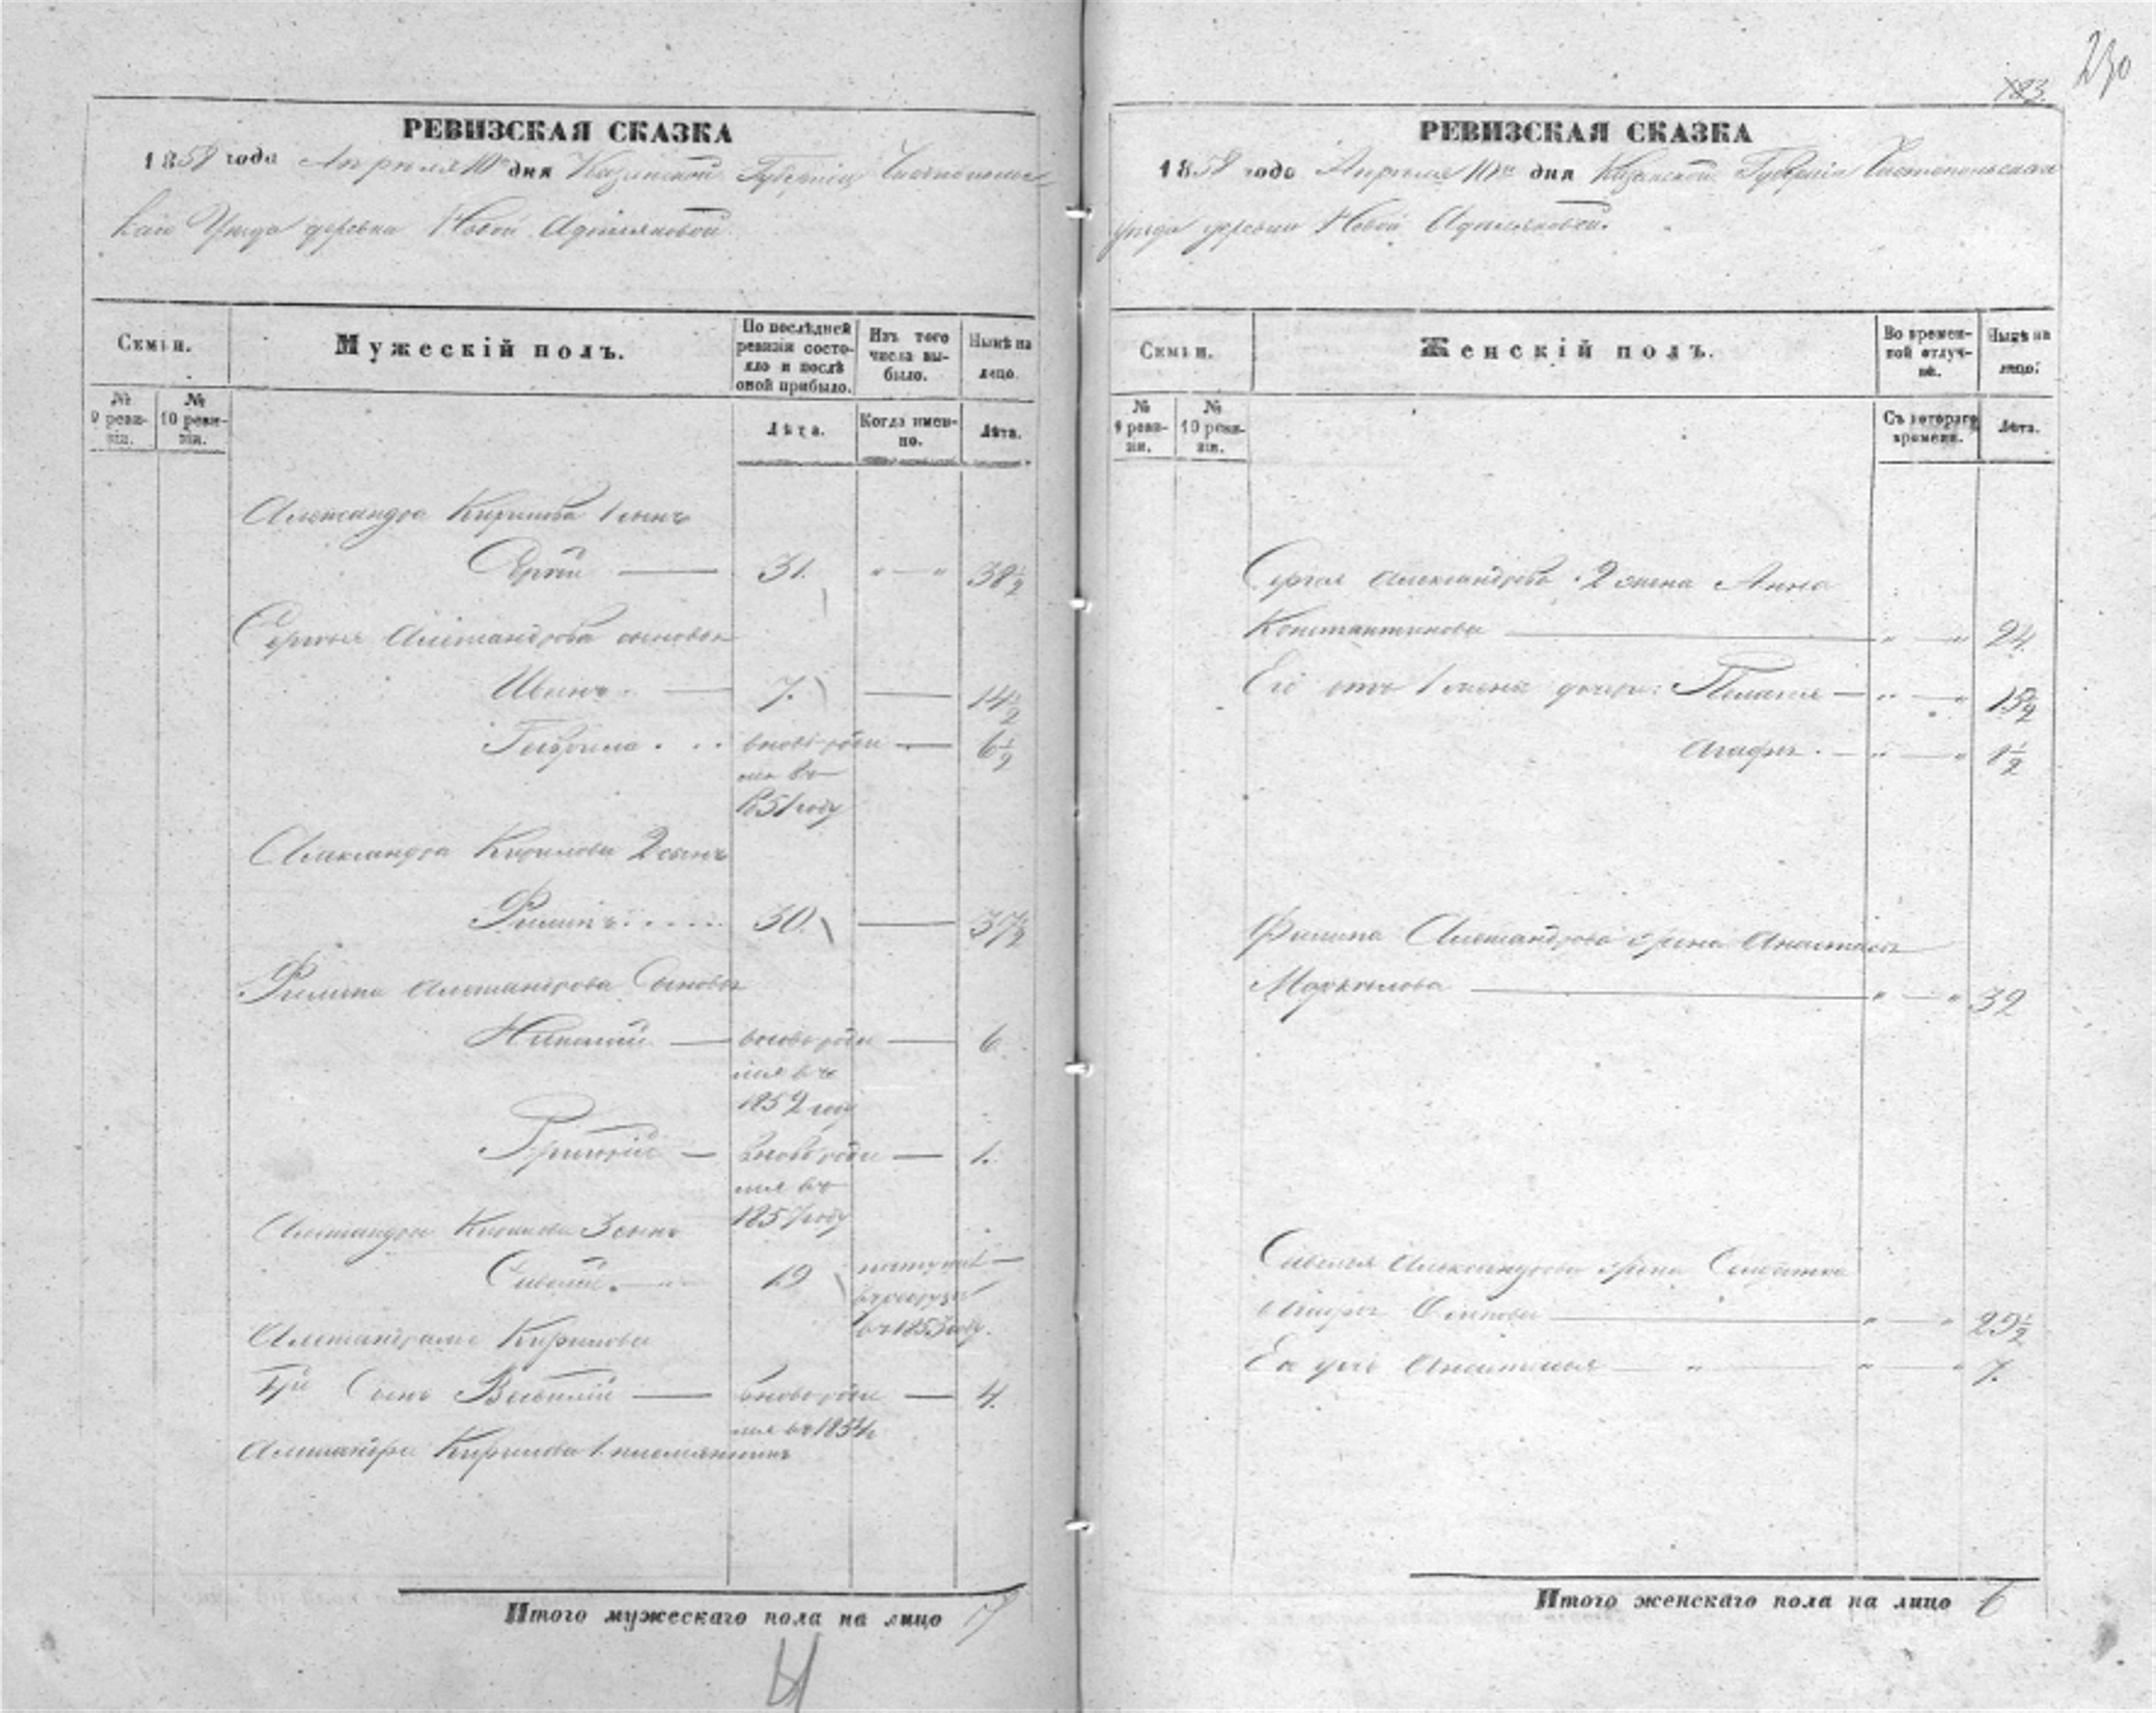 230
183.
РЕВИЗСКАЯ СКАЗКА
1858 года Апреля 10го дня Казанской Губернии Чистопольс-
каго Уезда деревни Новой Адамсковой
Семьи.
Мужескій полъ.
По послѣдней ревизіи состояло и послѣ оной прибыло.
Изъ того числа выбыло.
Нынѣ на лицо.
№ 9 ревизіи.
№ 10 ревизіи.
Лѣта.
Когда именно.
Лѣта.
Александра Кирилова 1 сынъ
Сергѣй 31. " — " 38½
Сергѣя Александрова сыновья
Иванъ 7. 14½
Гаврила вновь роди 6½
лся въ
1851 году
Александра Кирилова 2 сынъ
Филипъ 30. 37½
Филипа Александрова Сыновья
Николай вновь роди 6
лся въ
1852 году
Григорій вновь роди 1.
лся въ
1857 году
Александра Кирилова 3 сынъ
Савелій 19 поступил
в рекруты
въ 1853 году.
Александра Кирилова
4й Сынъ Василій вновь роди 4.
лся въ 1854
Александра Кирилова 1. племянникъ
Итого мужескаго пола на лицо 7
РЕВИЗСКАЯ СКАЗКА
1858 года Апреля 10го дня Казанской Губерніи Чистопольскаго
уезда деревни Новой
Семьи.
Женскій полъ.
Во временной отлучкѣ.
Нынѣ на лицо.
№ 9 ревизіи.
№ 10 ревизіи.
Съ котораго времени.
Лѣта.
Сергѣя Александрова 2 жена Анна
Константинова " — " 24
Его отъ 1 жены дочери: Пелагея — " — " 15½
Агафья. — " — " 1½
Филипа Александрова жена Анастасья
" — " 32
Савелья Александрова жена Солдатка
Агафья " — " 29½
Ея дочь " " " 7.
Итого женскаго пола на лицо 6